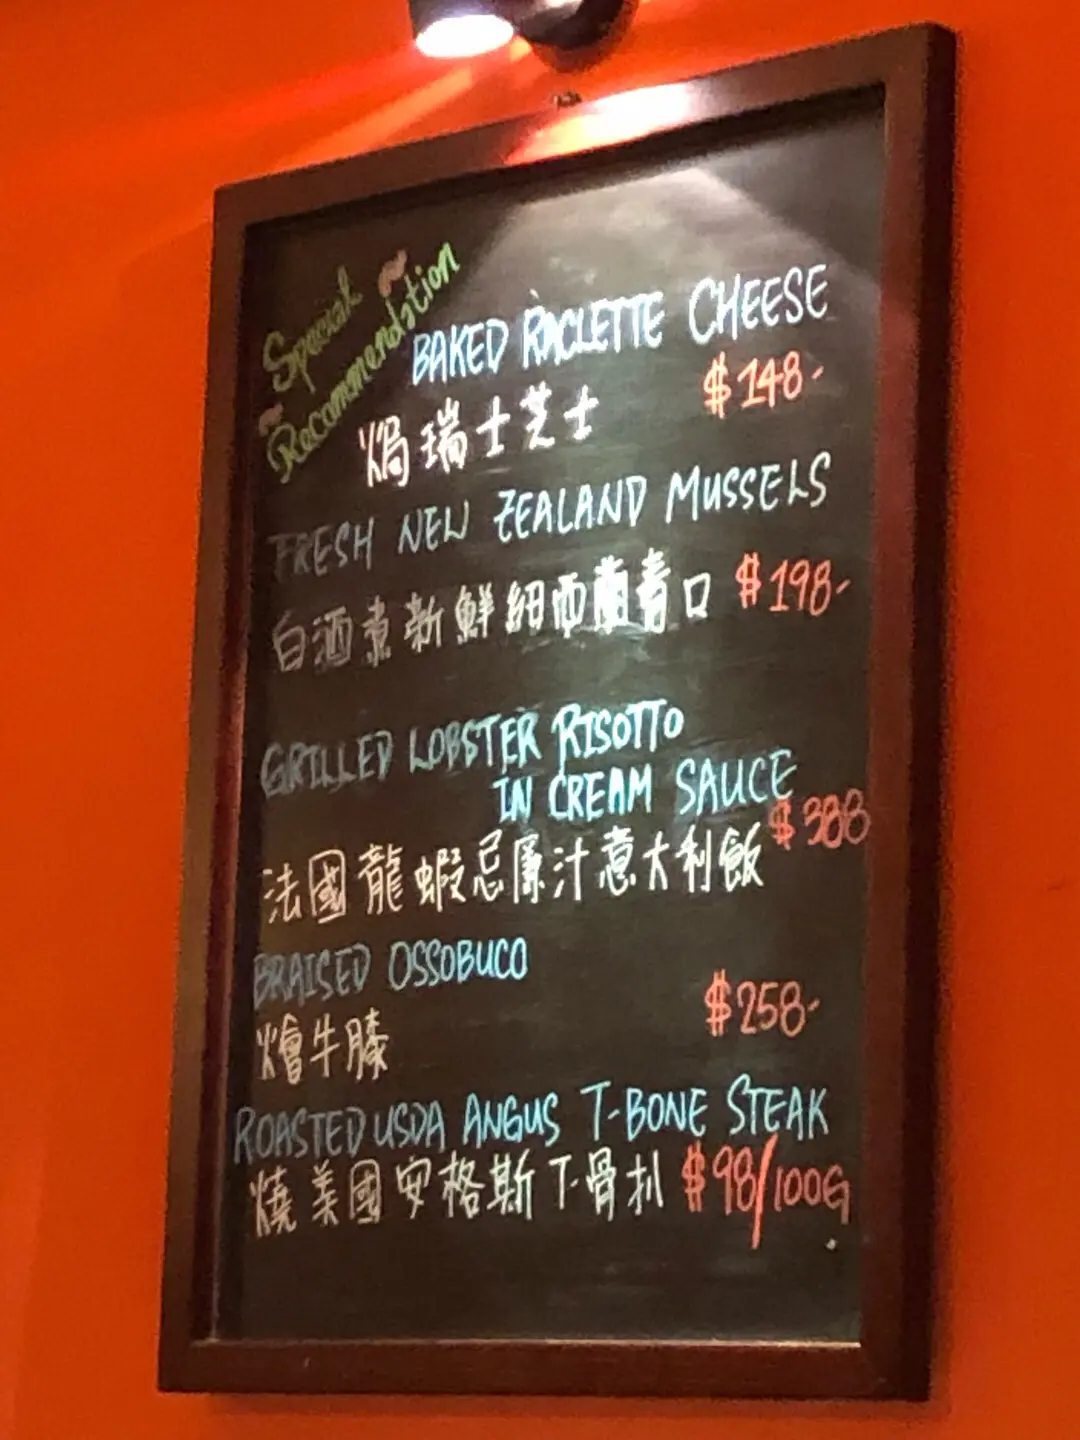 Special
Recommendation
BAKED RACLETTE CHEESE
焗瑞士芝士 $148-
FRESH NEW ZEALAND MUSSELS
白酒煮新鮮紐西蘭青口 $198-
GRILLED LOBSTER RISOTTO
IN CREAM SAUCE
$388
法國龍蝦忌廉汁意大利飯
BRAISED OSSOBUCO
$258-
燴牛膝
ROASTED USDA ANGUS T-BONE STEAK
燒美國安格斯T-骨扒 $98/100G